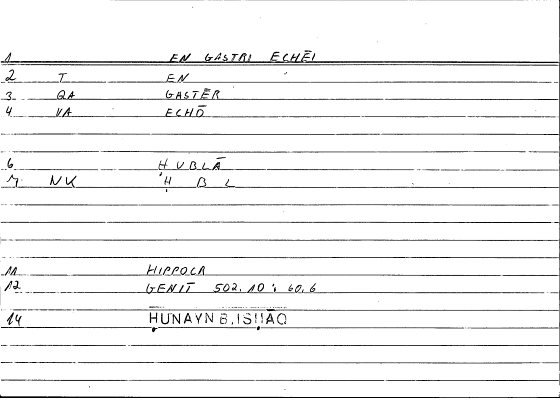 1 EN GASTRI ECHĒI
2 T EN
3 QA GASTĒR
4 VA ECHŌ
6 ḤUBLĀ
7 NK Ḥ B L
11 HIPPOCR
12 GENIT 502.10 : 60.6
14 ḤUNAYN B.ISḤĀQ